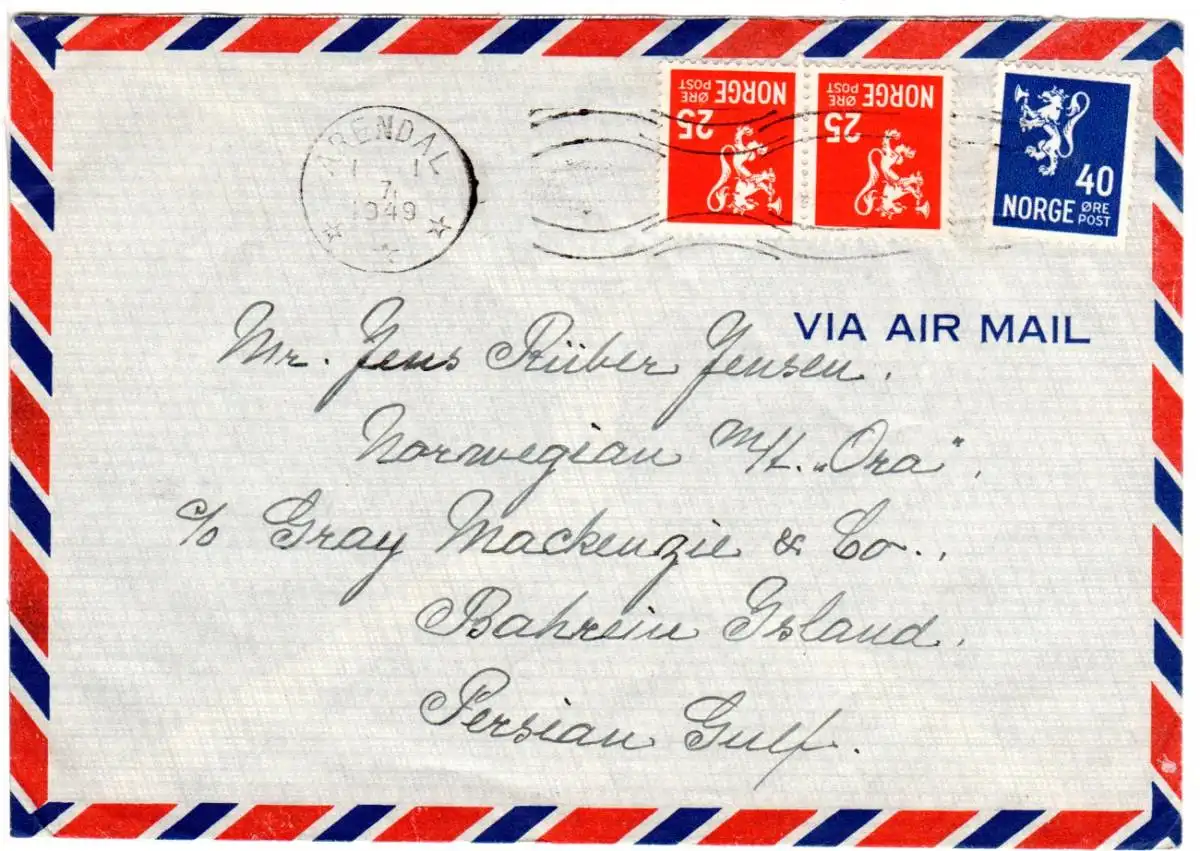 ARENDAL
1 1
7
1949
NORGE ØRE POST
25
NORGE ØRE POST
25
40
NORGE ØRE POST
VIA AIR MAIL
Mr. Jens Rüber Jensen.
Norwegian m/t. „Ora".
c/o Gray Mackenzie & Co..
Bahrein Island.
Persian Gulf.